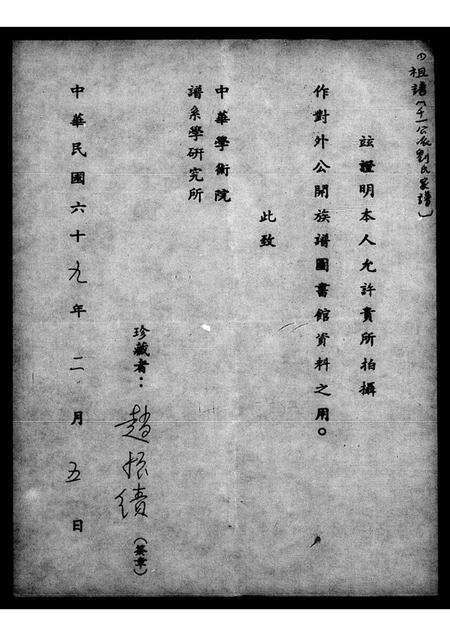 ①祖譜(千一公派劉氏家譜)
茲證明本人允許貴所拍攝
作對外公開族譜圖書館資料之用。
此致
中華學術院
譜系學研究所
珍藏者：趙振績(簽章)
中華民國六十九年二月五日